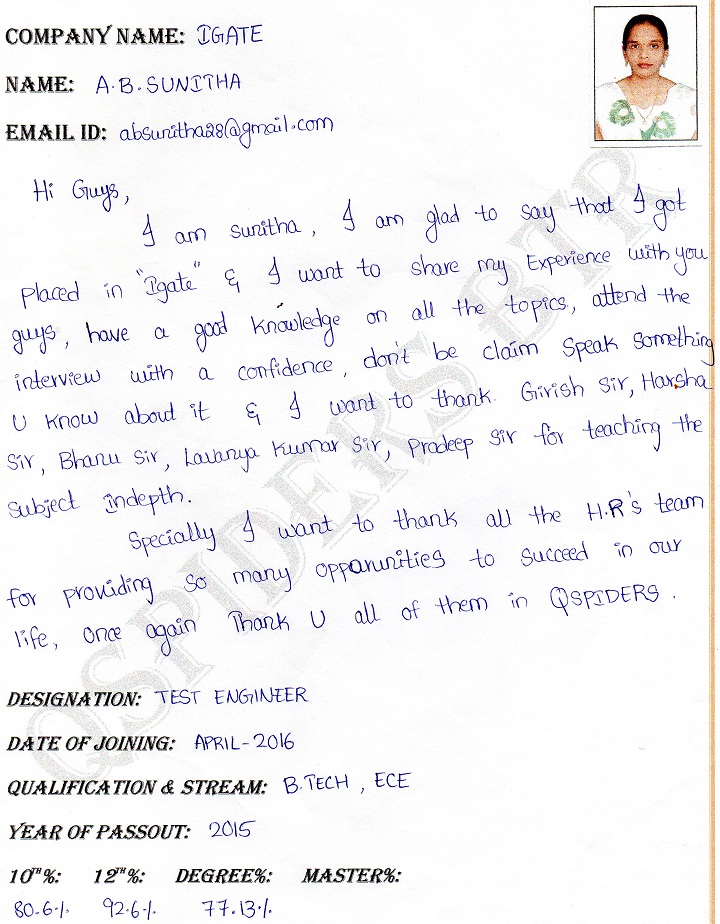 COMPANY NAME: IGATE
NAME: A.B.SUNITHA
EMAIL ID: absunitha28@gmail.com
Hi Guys,
I am sunitha, I am glad to say that I got
placed in "Igate" & I want to share my Experience with you
guys, have a good knowledge on all the topics, attend the
interview with a confidence, don't be claim speak something
U know about it & I want to thank Girish Sir, Harsha
Sir, Bhanu Sir, Lavanya Kumar Sir, Pradeep Sir for teaching the
subject indepth.
Specially I want to thank all the H.R's team
for providing so many oppArunities to succeed in our
life, Once again Thank U all of them in QSPIDERS.
DESIGNATION: TEST ENGINEER
DATE OF JOINING: APRIL-2016
QUALIFICATION & STREAM: B.TECH, ECE
YEAR OF PASSOUT: 2015
10TH%: 12TH%: DEGREE%: MASTER%:
80.6% 92.6% 77.13%
QSPIDERS BTR